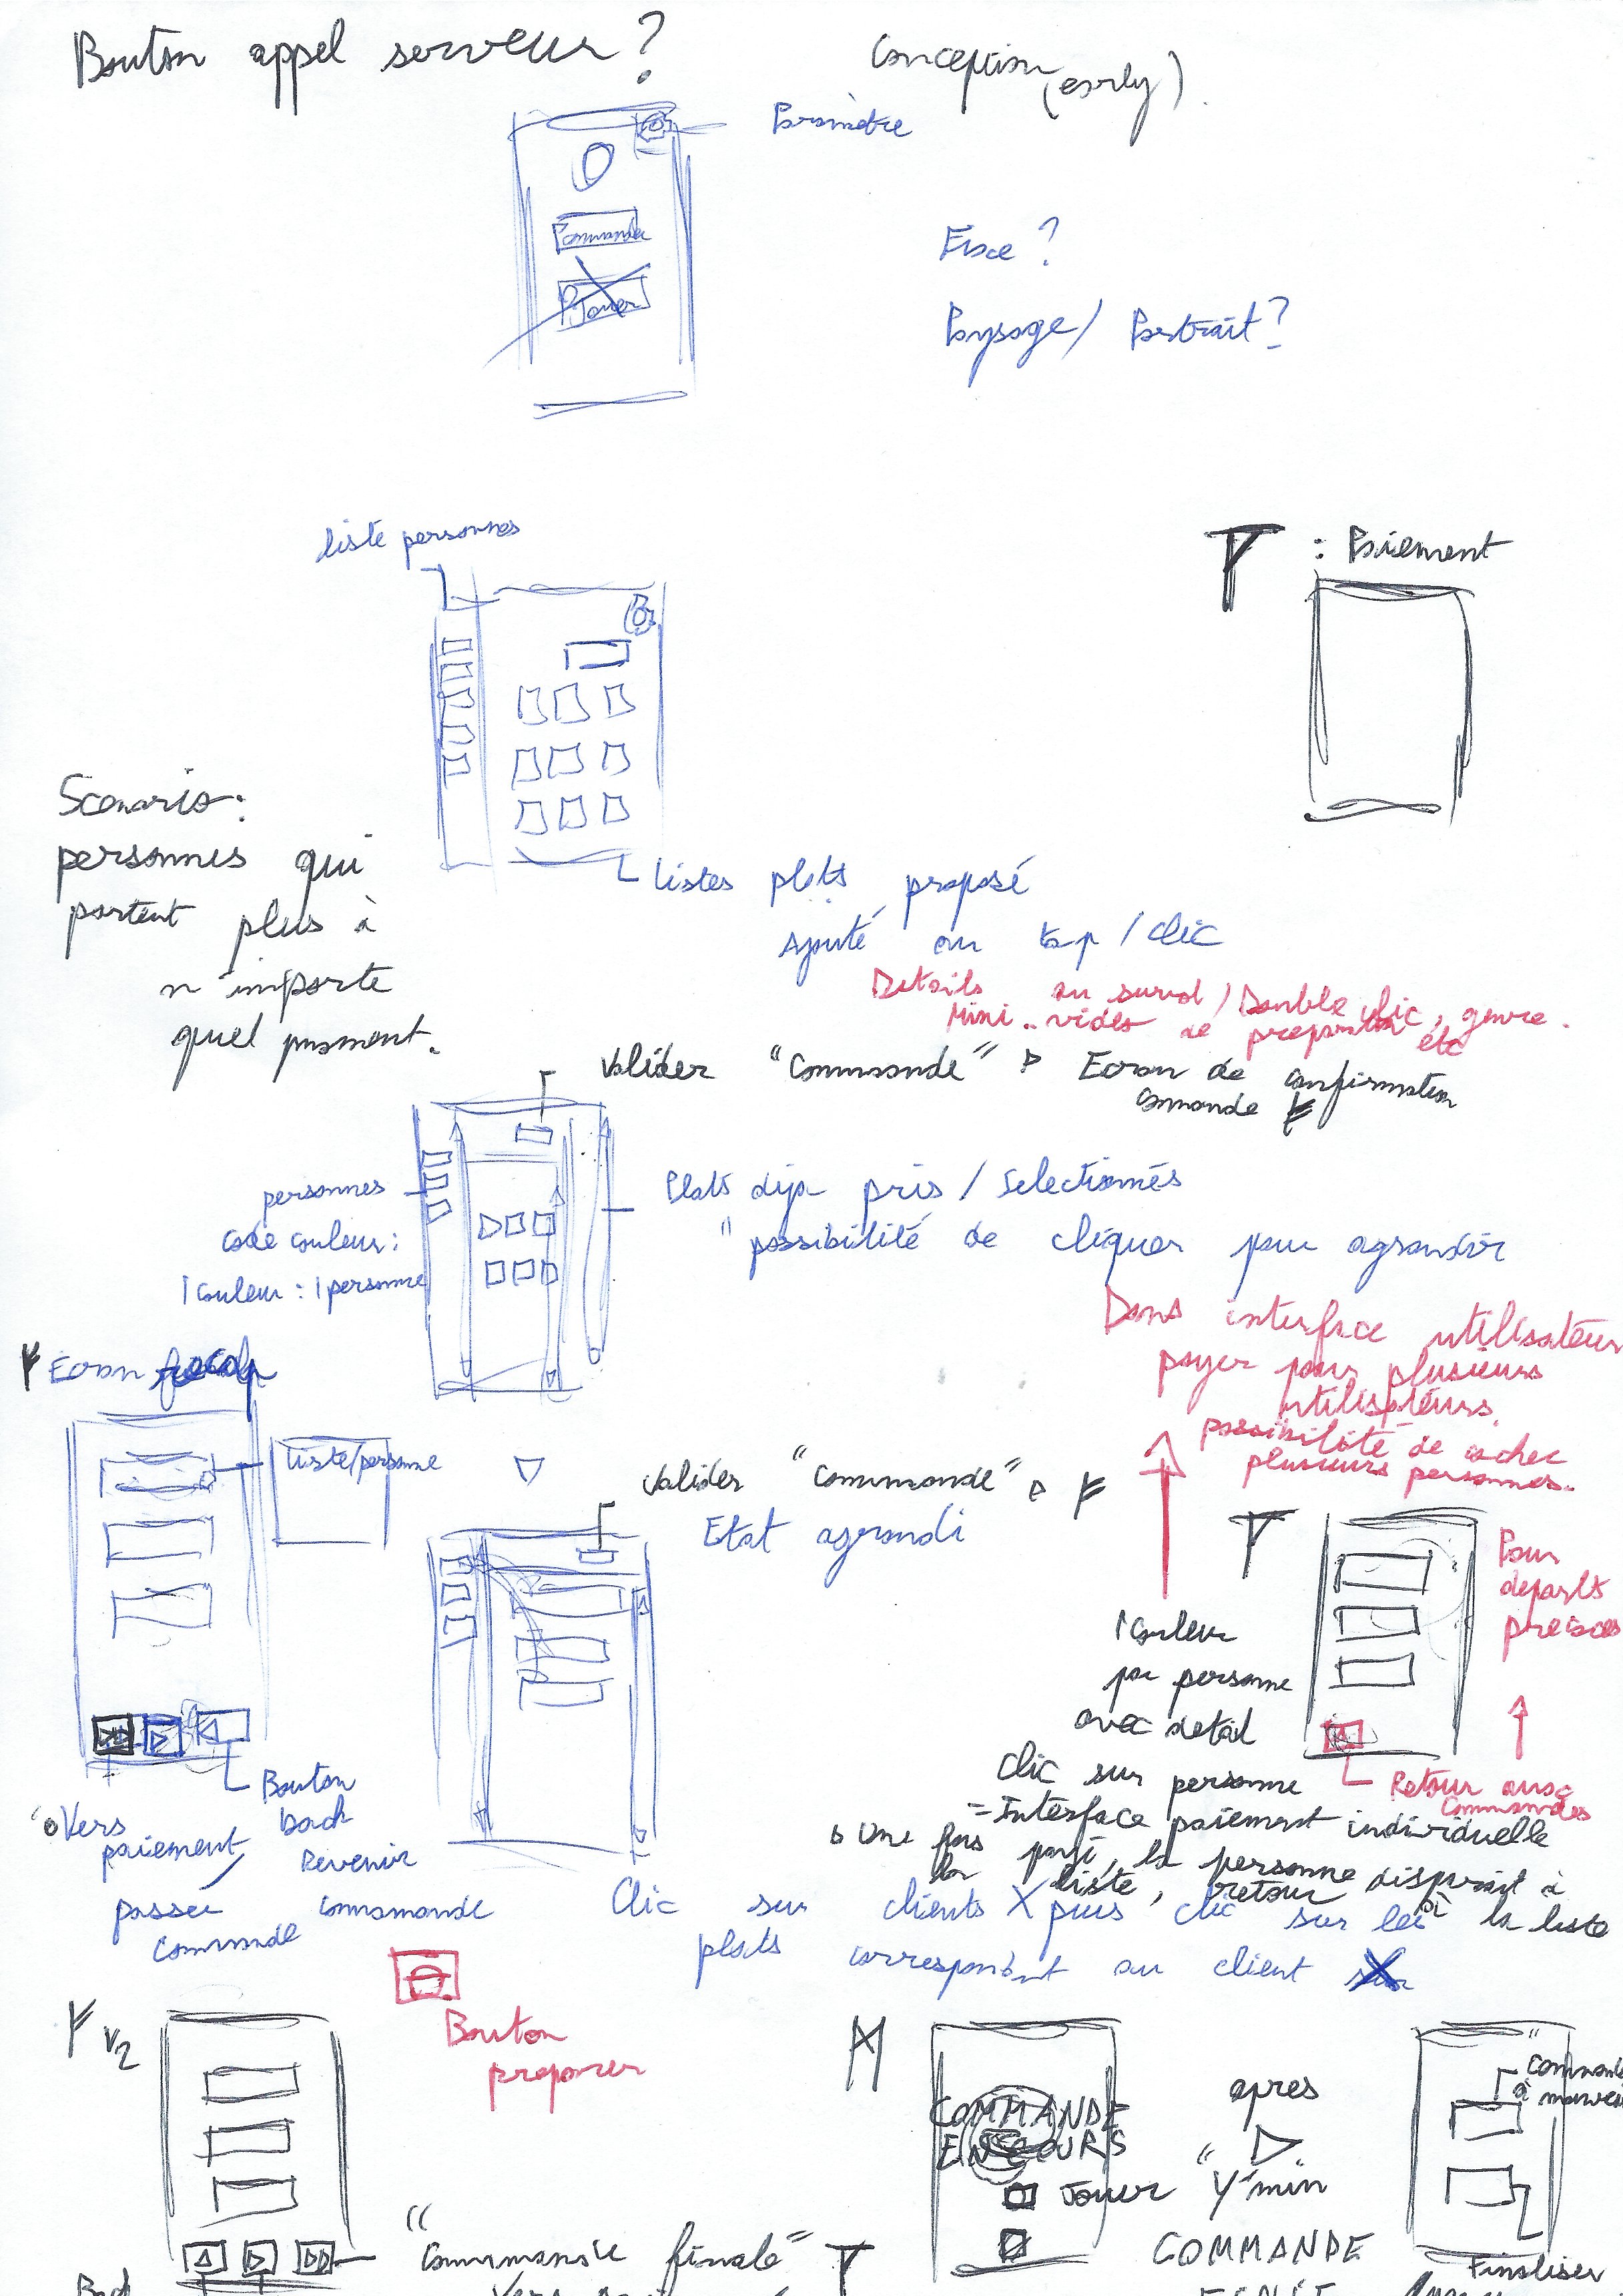 Bouton appel serveur ?
Conception
(early)
Paramètre
Commander
Jouer
Fixe ?
Paysage / Portrait ?
liste personnes
: Paiement
Scenario:
personnes qui
partent plus à
n'importe
quel moment.
Listes plats proposé
Ajouté au tap / clic
Details au survol / Double clic, genre.
Mini video de preparation etc
Valider "Commande"
Ecran de confirmation
commande
personnes
code couleur:
1 couleur : 1 personne
Plats deja pris / Selectionnés
" possibilité de cliquer pour agrandir
Dans interface utilisateur
payer pour plusieurs
utilisateurs.
possibilité de cocher
plusieurs personnes.
Ecran recap
Liste/personne
Valider "Commande"
Etat agrandi
Pour
departs
precoces
1 couleur
par personne
avec detail
Clic sur personne
= Interface paiement individuelle
Une fois payé, la personne disparait à
la liste, retour à la liste
Retour aux
commandes
Vers
paiement /
passer
commande
Bouton
back
Revenir
commande
Clic sur clients X puis clic sur les
plats correspondant au client
Bouton
proposer
V2
COMMANDE
EN COURS
Jouer
apres
"Y" min
COMMANDE
Commande
à nouveau
Finaliser
"Commande finale"
Back
Vers